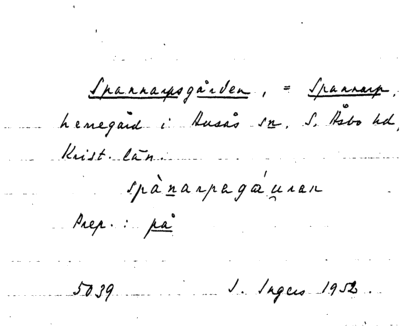 Spannarpsgården, = Spannarp,
herregård i Ausås sn. S. Åsbo hd,
Krist. län.
spànarpagáu̯ran
Prep.: på
5039 I. Ingers 1952.